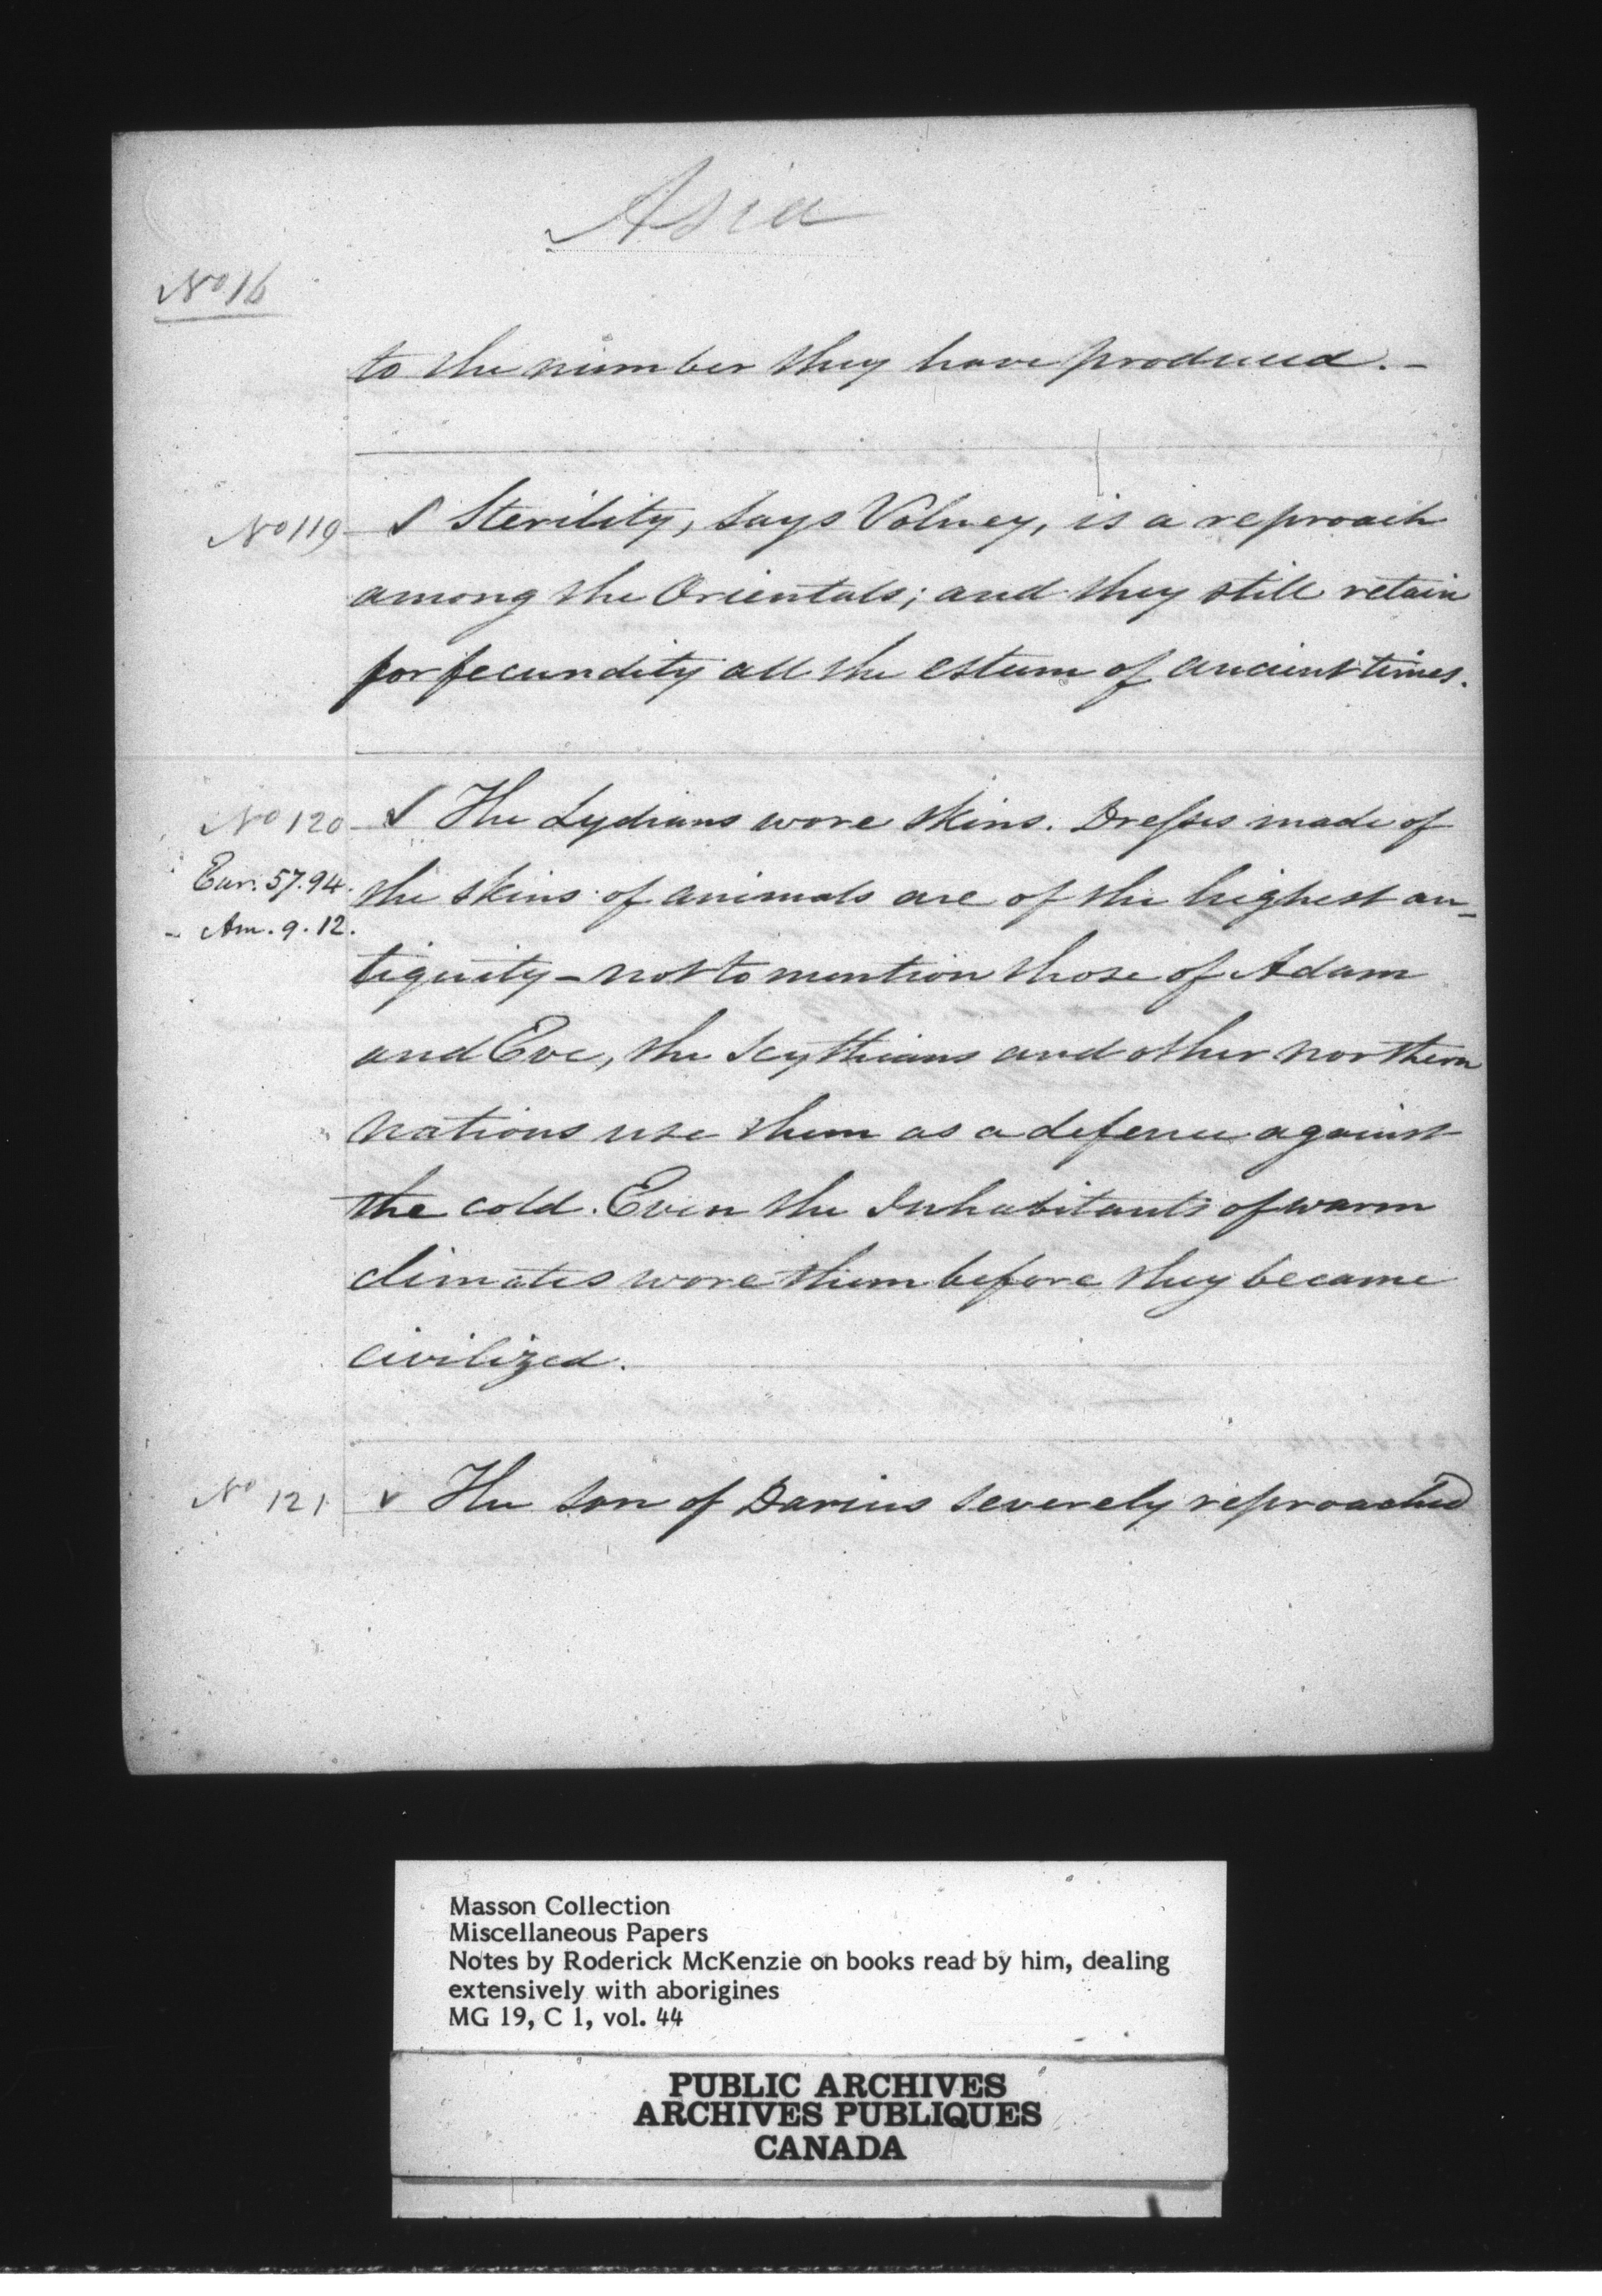 Asia
No 16
to the number they have produced. -
No 119 Sterility, says Volney, is a reproach
among the Orientals; and they still retain
for fecundity all the esteem of ancient times.
No 120 The Lydians wore skins. Dresses made of
Eur. 57.94. the skins of animals are of the highest an-
- Am. 9. 12.
tiquity - not to mention those of Adam
and Eve, the Scythians and other northern
nations use them as a defence against
the cold. Even the Inhabitants of warm
climates wore them before they became
civilized.
No 121 The son of Darius severely reproached
Masson Collection
Miscellaneous Papers
Notes by Roderick McKenzie on books read by him, dealing
extensively with aborigines
MG 19, C 1, vol. 44
PUBLIC ARCHIVES
ARCHIVES PUBLIQUES
CANADA